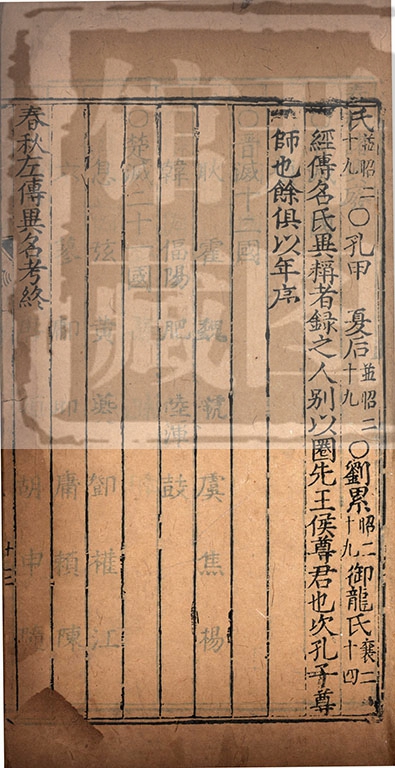 氏並昭二十九○孔甲 夏后並昭二十九○劉累昭二十九御龍氏襄二十四
經傳名氏異稱者錄之人別以圈先王侯尊君也次孔子尊
師也餘俱以年序
○晉滅十二國
耿 霍 魏 虢 虞 焦 楊
韓 偪陽 肥 陸渾 鼓
○楚滅二十一國
息 弦 黃 英 鄧 權 江
庸 頓 陳
胡 申 隨
春秋左傳異名考終